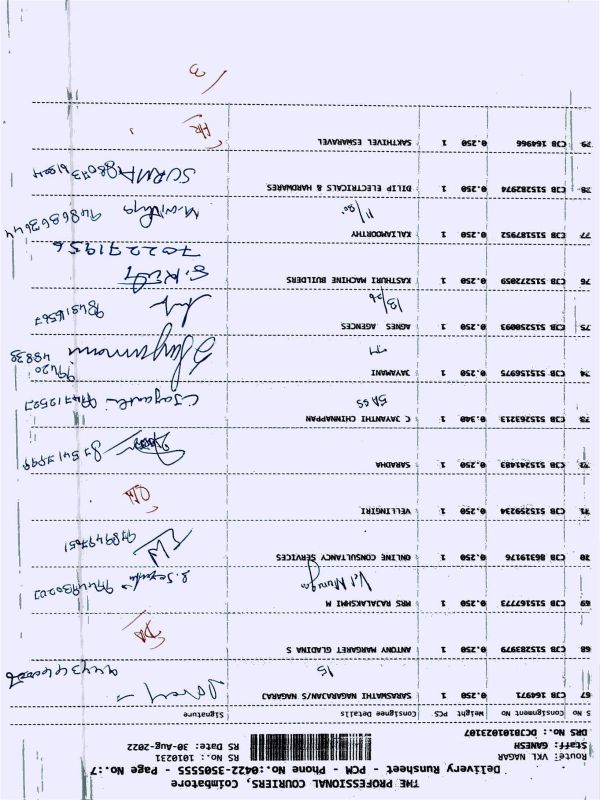 THE PROFESSIONAL COURIERS, Coimbatore
Delivery Runsheet - PCM - Phone No.:0422-3505555 - Page No.:7
Route: VKL NAGAR RS No.: 1010231
Staff: GANESH RS Date: 30-Aug-2022
DRS No.: DCJB101023107
S No Consignment No Weight PCS Consignee Details Signature
67 CJB 164971 0.250 1 SARASWATHI NAGARAJAN/S NAGARAJ
15
68 CJB 515283979 0.250 1 ANTONY MARGARET GLADINA S
69 CJB 515167773 0.250 1 MRS RAJALAKSHMI M
Vel Muruga
70 CJB 86319176 0.250 1 ONLINE CONSULTANCY SERVICES
9789497051
71 CJB 515259234 0.250 1 VELLINGIRI
72 CJB 515241483 0.250 1 SARADHA
73 CJB 515263213 0.340 1 C JAYANTHI CHINNAPPAN C Jayanthi 9944712527
74 CJB 515156975 0.250 1 JAYAMANI
77
99420
48839
75 CJB 515250093 0.250 1 AGNES AGENCES
13/26
76 CJB 515272059 0.250 1 KASTHURI MACHINE BUILDERS
702271956
77 CJB 515187952 0.250 1 KALIAMOORTHY
11/20
9486863644
78 CJB 515282974 0.250 1 DILIP ELECTRICALS & HARDWARES
79 CJB 164966 0.250 1 SAKTHIVEL ESWARAVEL
13